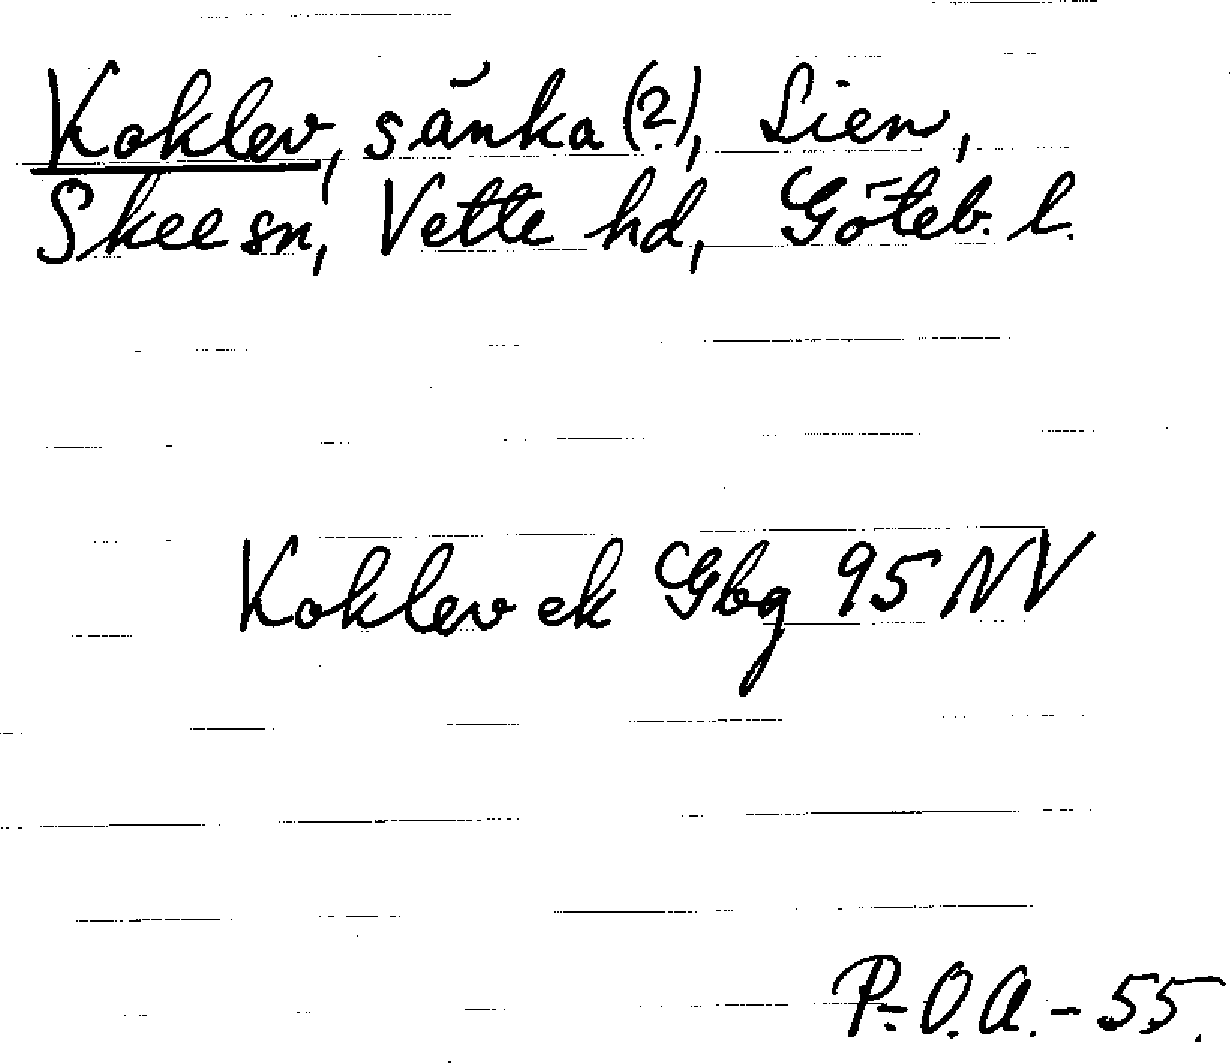 Koklev, sänka (?), Lien,
Skee sn, Vette hd, Göteb. l.
Koklev ek Gbg 95 NV
P.-O. A. - 55.